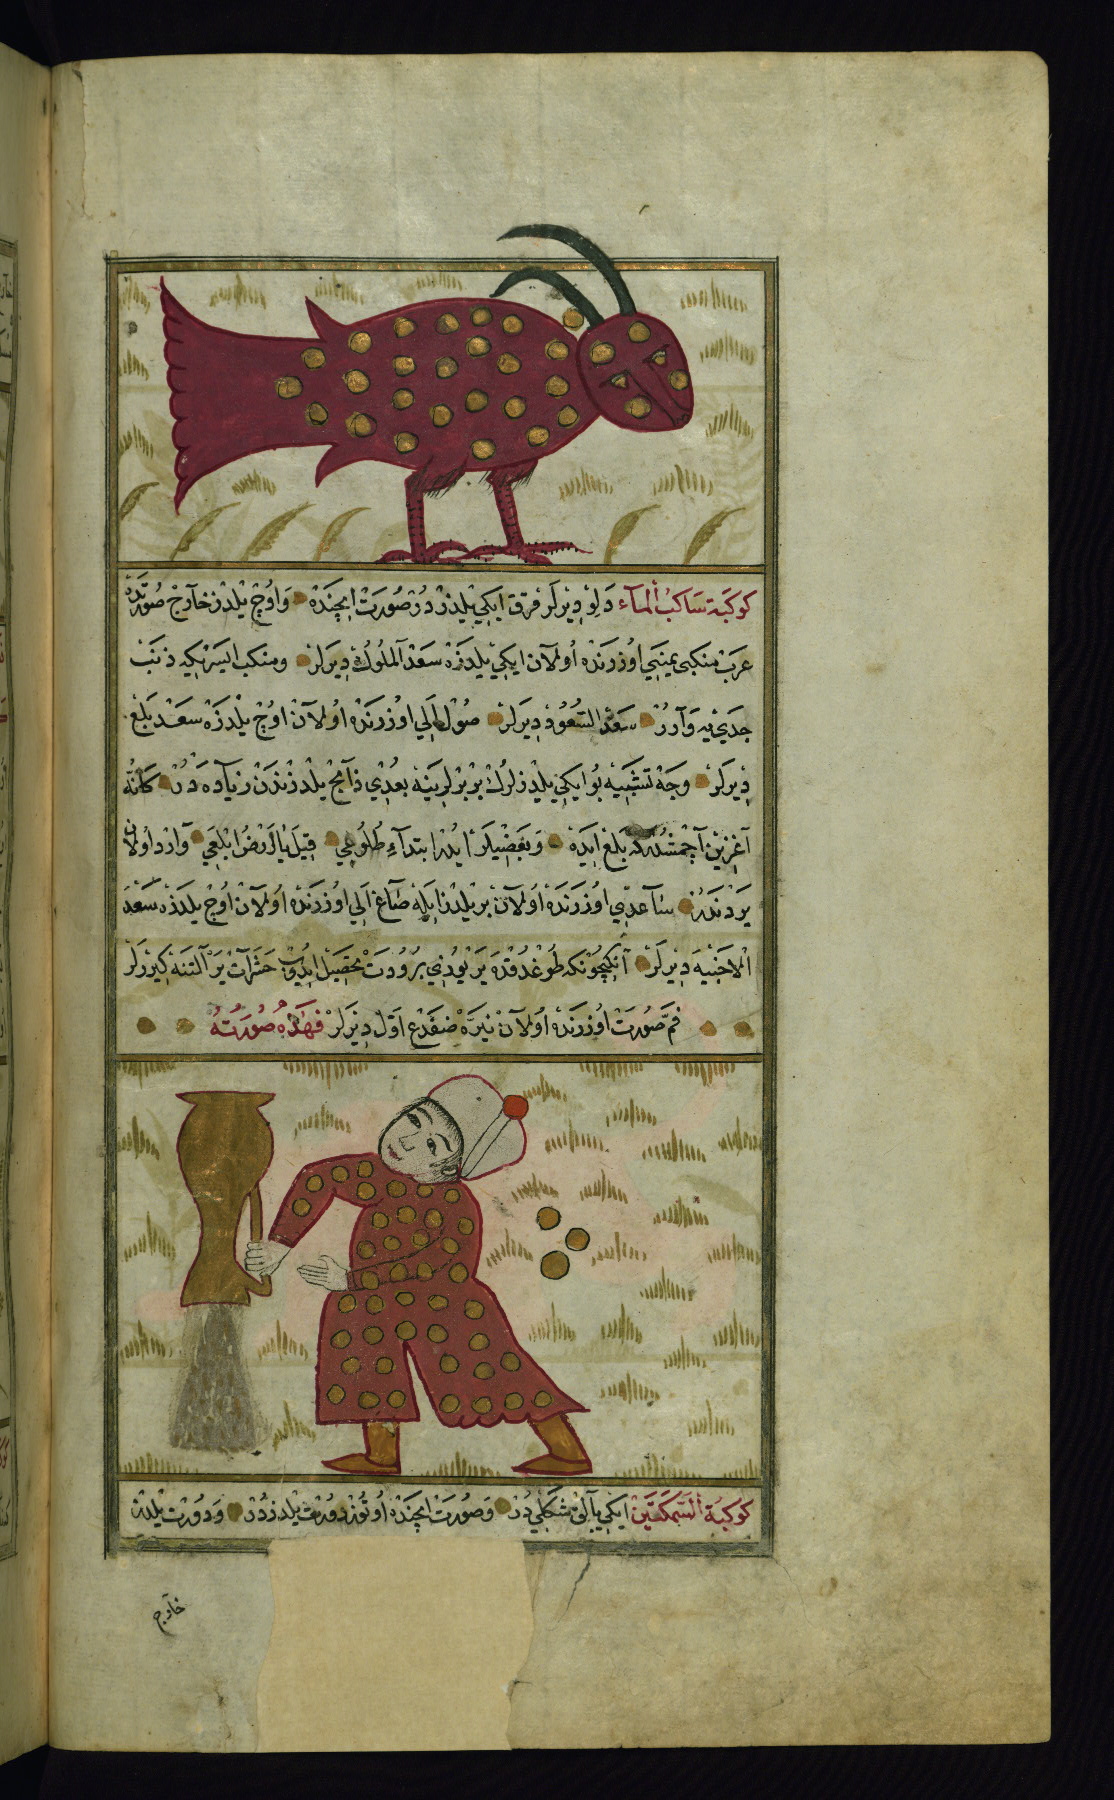 كوكبة ساكب ألمآء دلو ديرلر قرق ايكي يلدزدر صورت ايچنده واوچ يلدز خآرج صورتده
عرب منكبى يمينى اوزرنده اولآن ايكي يلدزه سعد آلملوك ديرلر ومنكب ايسريكه ذنب
جدي يه وآرر سعد السعود ديرلر صول الي اوزرنده اولآن اوچ يلدزه سعد بلع
ديرلر وجه تشبيه بو ايكي يلديزلرك بربرلرينه بعدي ذآبح يلدزندن زيآده در كانّه
آغزين آچمشدركه بلع ايده وبعضيلر ايدر ابتدآء طلوعي قيل يآارض ابلعي وآرد اولآن
يردندر سآعدي اوزرنده اولآن بر يلدز ايله صآغ الي اوزرنده اولآن اوچ يلدزه سعد
الاخبيه ديرلر آنكيچونكه طوغدقده ير يوزي برودت تحصيل ايدوب حشرآت ير آلتنه كيررلر
فم صورت اوزرنده اولآن نيره ضفدع اول ديرلر فهذه صورته
كوكبة ألسمكتين ايكي بآلق شكلي در وصورت ايچنده اوتوز دورت يلدزدر ودورت يلدز
خآرج